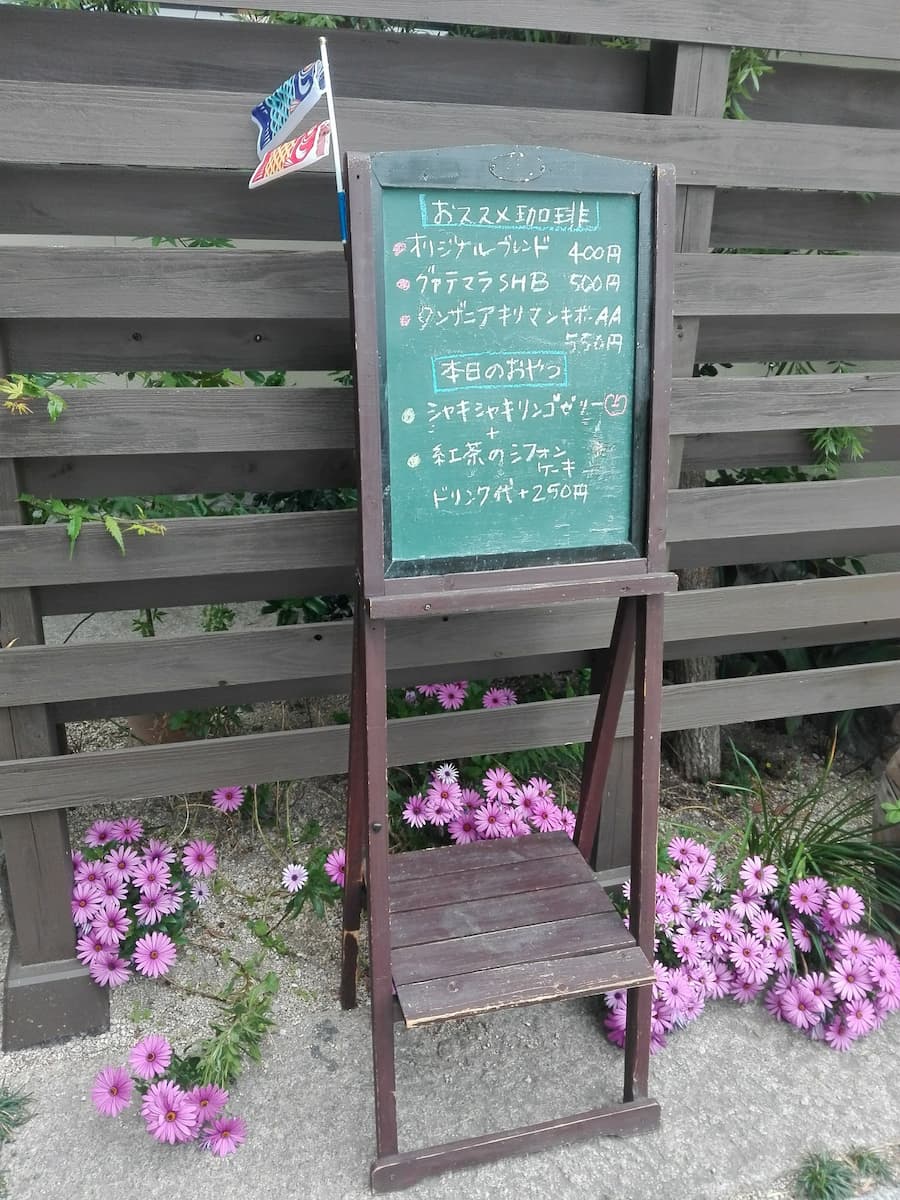 おススメ珈琲
オリジナルブレンド 400円
グァテマラSHB 500円
タンザニアキリマンキボーAA
550円
本日のおやつ
シャキシャキリンゴゼリー
+
紅茶のシフォン
ケーキ
ドリンク代+250円